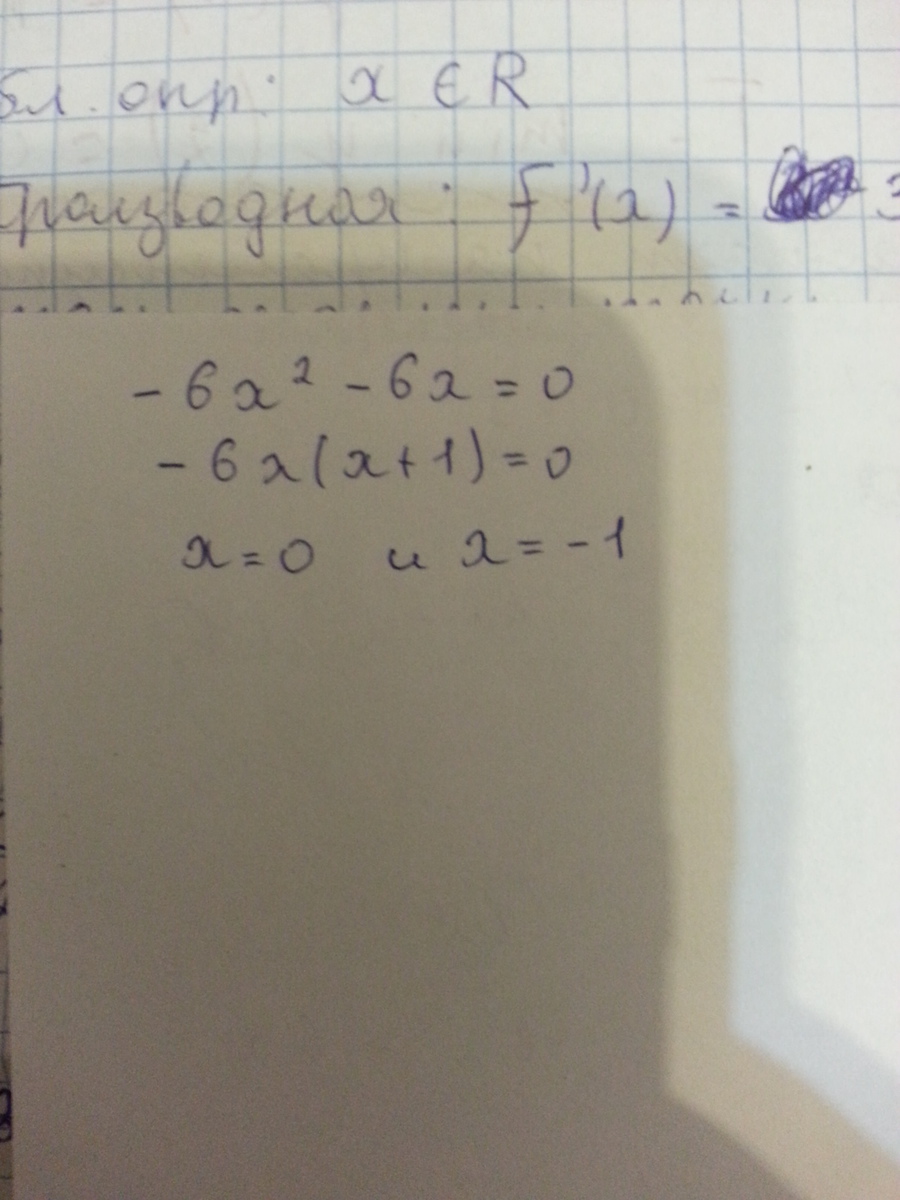 бл. опр: x ∈ R
Производная: f'(x) = 3
-6x² - 6x = 0
-6x(x+1)=0
x=0 и x=-1